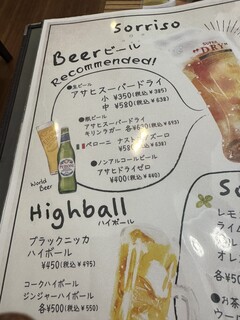 Sorriso
Beer ビール
Recommended!
●生ビール
アサヒスーパードライ
小 ¥350(税込¥385)
中 ¥580(税込¥638)
●瓶ビール
アサヒスーパードライ
キリンラガー 各¥630(税込¥693)
ペローニ ナストロアズーロ
¥580(税込¥638)
●ノンアルコールビール
アサヒドライゼロ
¥400(税込¥440)
World
Beer
DRY
Highball
ハイボール
ブラックニッカ
ハイボール
¥450(税込¥495)
コークハイボール
ジンジャーハイボール
各¥500(税込¥550)
So
レモ
ライム
オレ
各¥50
●お茶
ウー
各¥